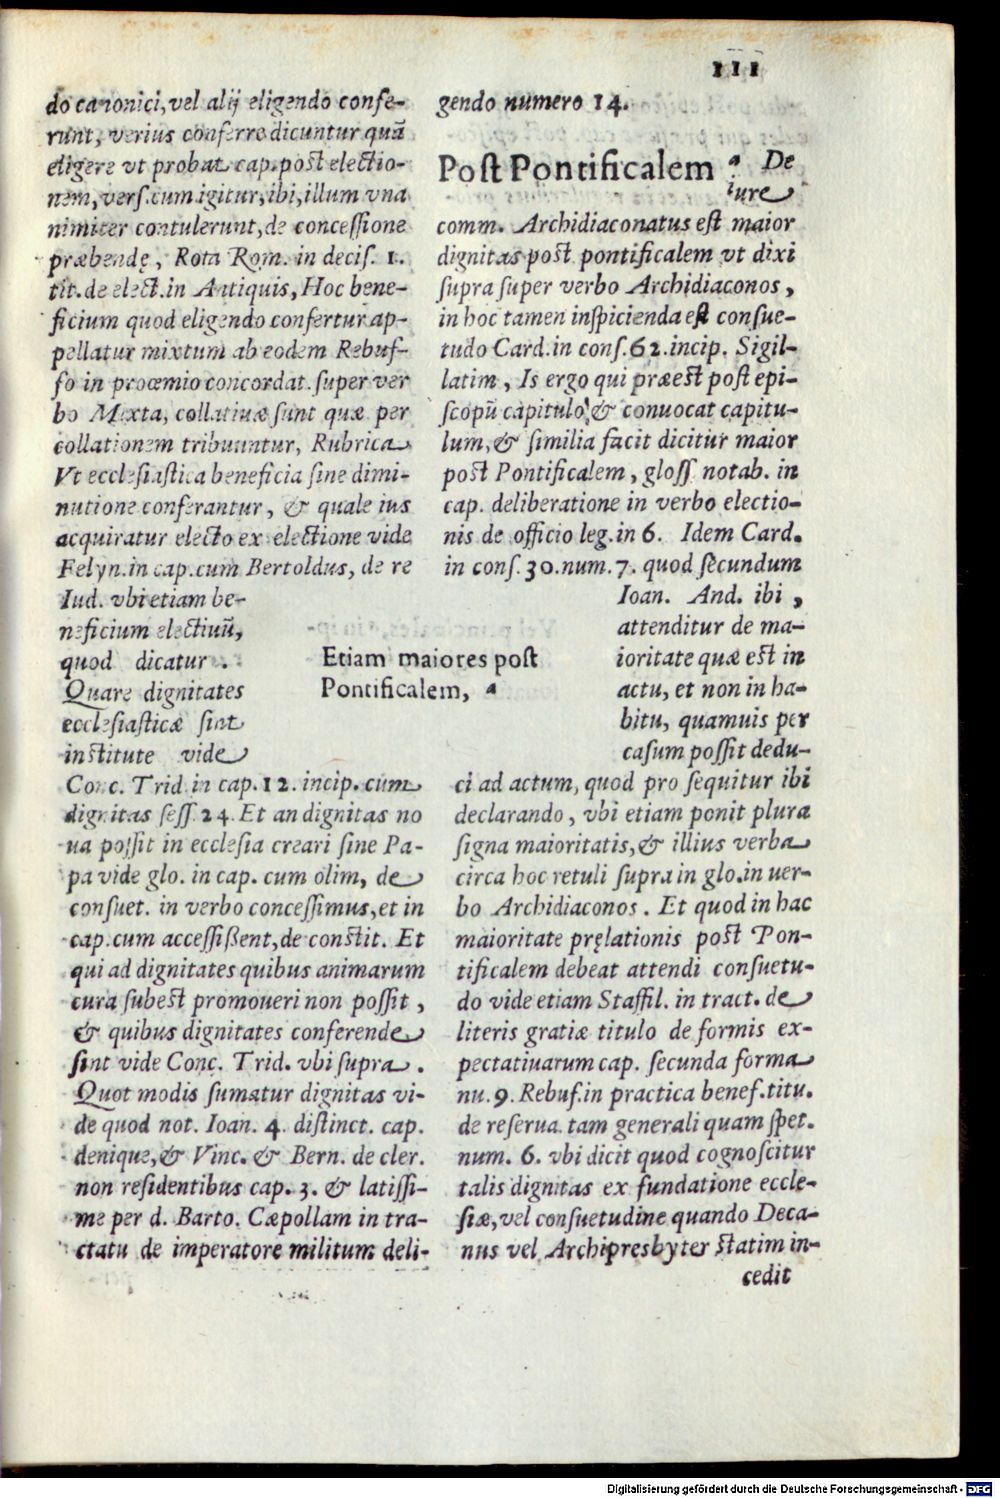 111
do canonici, vel alij eligendo confe-
runt, verius conferre dicuntur quā
eligere vt probat cap. post electio-
nem, vers. cum igitur, ibi, illum vna
nimiter contulerunt, de concessione
præbendę, Rota Rom. in decis. 1.
tit. de elect. in Antiquis, Hoc bene-
ficium quod eligendo confertur ap-
pellatur mixtum ab eodem Rebuf-
fo in proœmio concordat. super ver
bo Mixta, collatiuæ sunt quæ per
collationem tribuuntur, Rubrica
Vt ecclesiastica beneficia sine dimi-
nutione conferantur, & quale ius
acquiratur electo ex electione vide
Felyn. in cap. cum Bertoldus, de re
Iud. vbi etiam be-
neficium electiuū,
quod dicatur.
Quare dignitates
ecclesiasticæ sint
institute vide
Conc. Trid in cap. 12. incip. cum
dignitas sess. 24. Et an dignitas no
ua possit in ecclesia creari sine Pa-
pa vide glo. in cap. cum olim, de
consuet. in verbo concessimus, et in
cap. cum accessissent, de constit. Et
qui ad dignitates quibus animarum
cura subest promoueri non possit,
& quibus dignitates conferende
sint vide Conc. Trid. vbi supra.
Quot modis sumatur dignitas vi-
de quod not. Ioan. 4. distinct. cap.
denique, & Vinc. & Bern. de cler.
non residentibus cap. 3. & latissi-
me per d. Barto. Cæpollam in tra-
ctatu de imperatore militum deli-
Etiam maiores post
Pontificalem, a
gendo numero 14.
Post Pontificalem a De
iure
comm. Archidiaconatus est maior
dignitas post pontificalem vt dixi
supra super verbo Archidiaconos,
in hoc tamen inspicienda est consue-
tudo Card. in cons. 62. incip. Sigil-
latim, Is ergo qui præest post epi-
scopū capitulo, & conuocat capitu-
lum, & similia facit dicitur maior
post Pontificalem, gloss notab. in
cap. deliberatione in verbo electio-
nis de officio leg. in 6. Idem Card.
in cons. 30. num. 7. quod secundum
Ioan. And. ibi,
attenditur de ma-
ioritate quæ est in
actu, et non in ha-
bitu, quamuis per
casum possit dedu-
ci ad actum, quod pro sequitur ibi
declarando, vbi etiam ponit plura
signa maioritatis, & illius verba
circa hoc retuli supra in glo. in uer-
bo Archidiaconos. Et quod in hac
maioritate pręlationis post Pon-
tificalem debeat attendi consuetu-
do vide etiam Staffil. in tract. de
literis gratiæ titulo de formis ex-
pectatiuarum cap. secunda forma
nu. 9. Rebuf. in practica benef. titu.
de reserua. tam generali quam spet.
num. 6. vbi dicit quod cognoscitur
talis dignitas ex fundatione eccle-
siæ, vel consuetudine quando Deca-
nus vel Archipresbyter statim in-
cedit
Digitalisierung gefördert durch die Deutsche Forschungsgemeinschaft - DFG